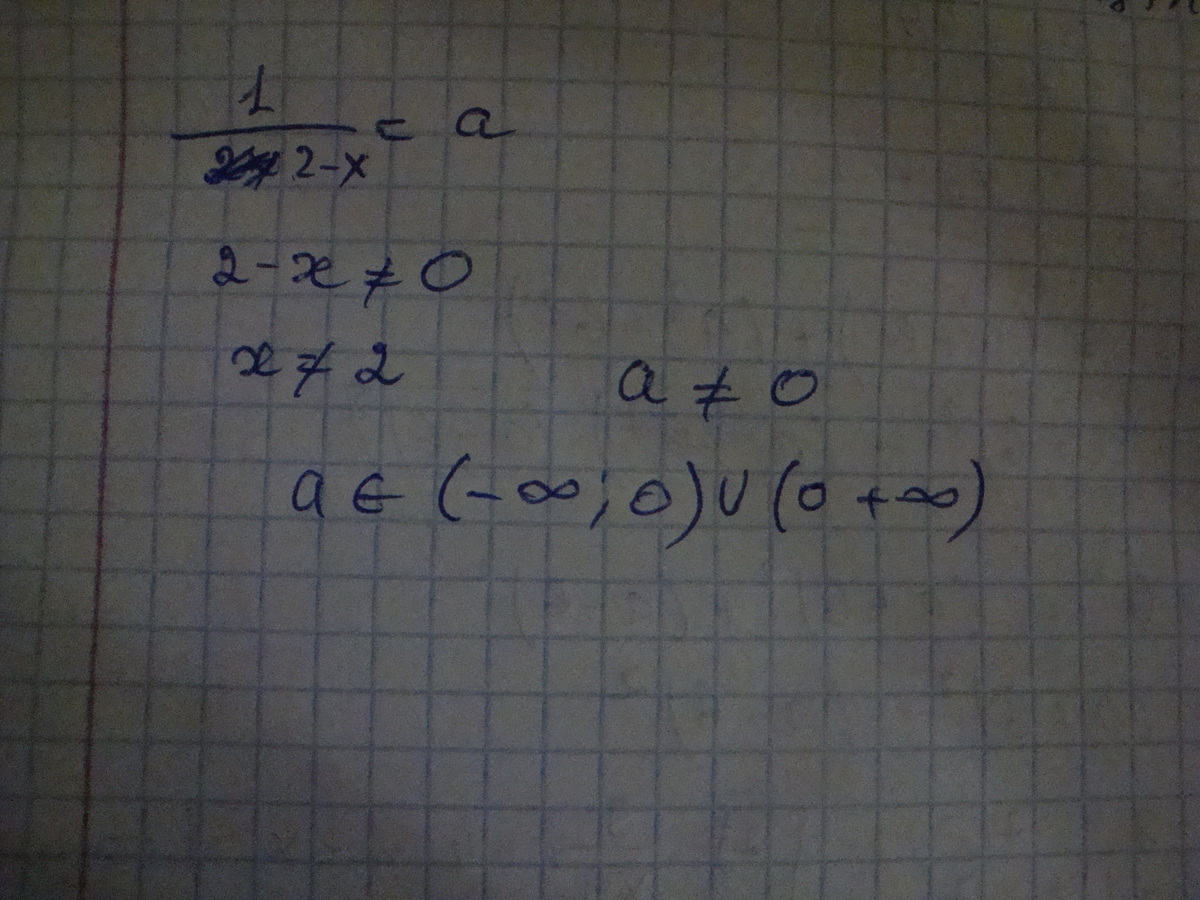 1
2-x = a
2-x ≠ 0
x ≠ 2 a ≠ 0
a ∈ (-∞; 0) ∪ (0 +∞)